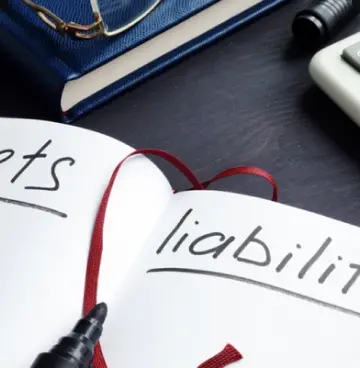 ets
liabilit